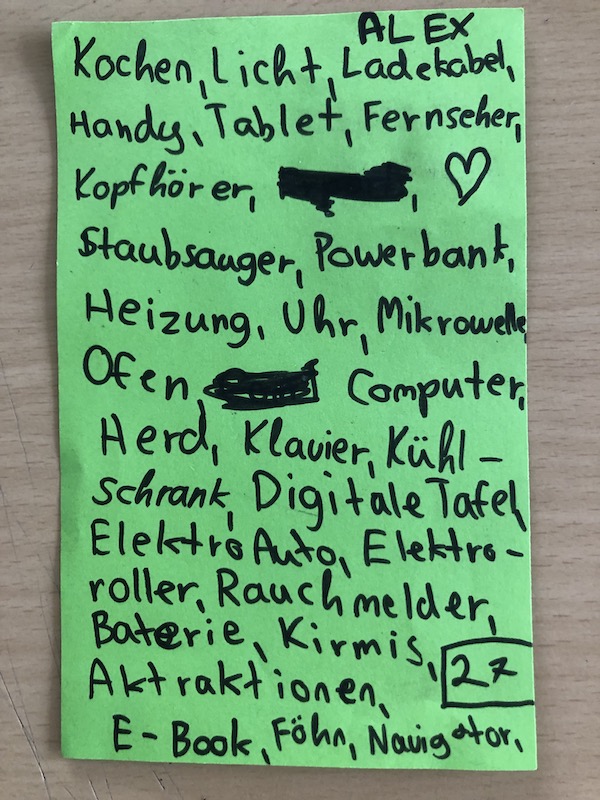 ALEX
Kochen, Licht, Ladekabel,
Handy, Tablet, Fernseher,
Kopfhörer, , ♡
Staubsauger, Powerbank,
Heizung, Uhr, Mikrowelle
Ofen, Computer,
Herd, Klavier, Kühl-
schrank, Digitale Tafel,
Elektro Auto, Elektro-
roller, Rauchmelder,
Baterie, Kirmis,
Aktraktionen, 27
E-Book, Föhn, Navigator,